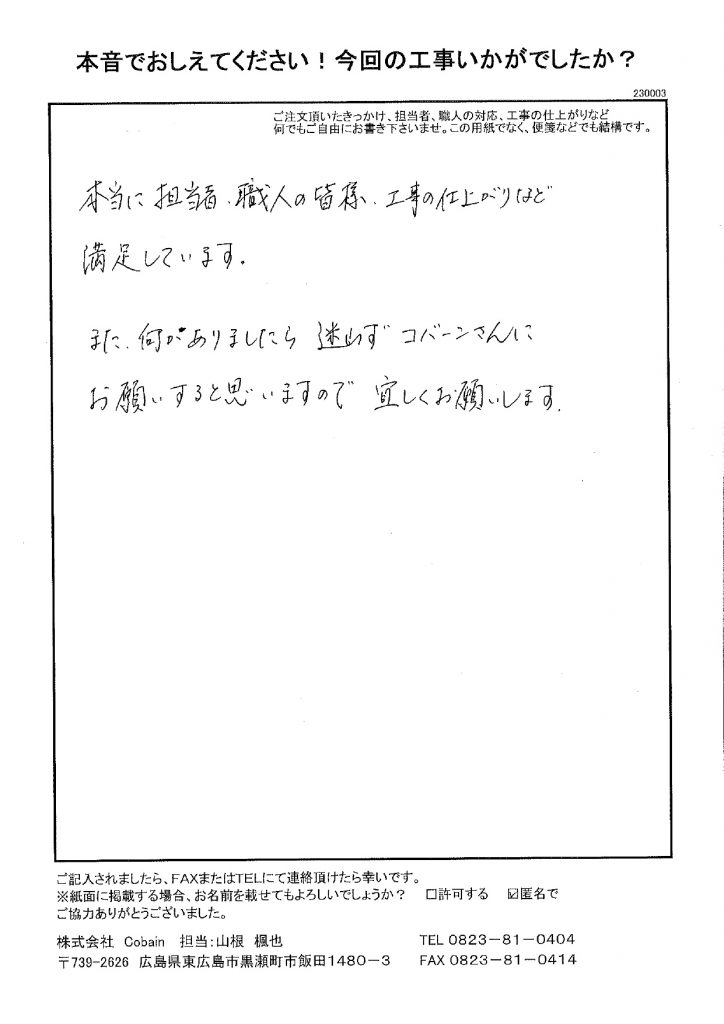 本音でおしえてください！今回の工事いかがでしたか？
230003
ご注文頂いたきっかけ、担当者、職人の対応、工事の仕上がりなど
何でもご自由にお書き下さいませ。この用紙でなく、便箋などでも結構です。
本当に担当者、職人の皆様、工事の仕上がりなど
満足しています。
また、何がありましたら迷わず コバーンさんに
お願いすると思いますので 宜しくお願いします。
ご記入されましたら、FAXまたはTELにて連絡頂けたら幸いです。
※紙面に掲載する場合、お名前を載せてもよろしいでしょうか？ □許可する ☑匿名で
ご協力ありがとうございました。
株式会社 Cobain 担当：山根 楓也 TEL 0823－81－0404
〒739-2626 広島県東広島市黒瀬町市飯田1480－3 FAX 0823－81－0414